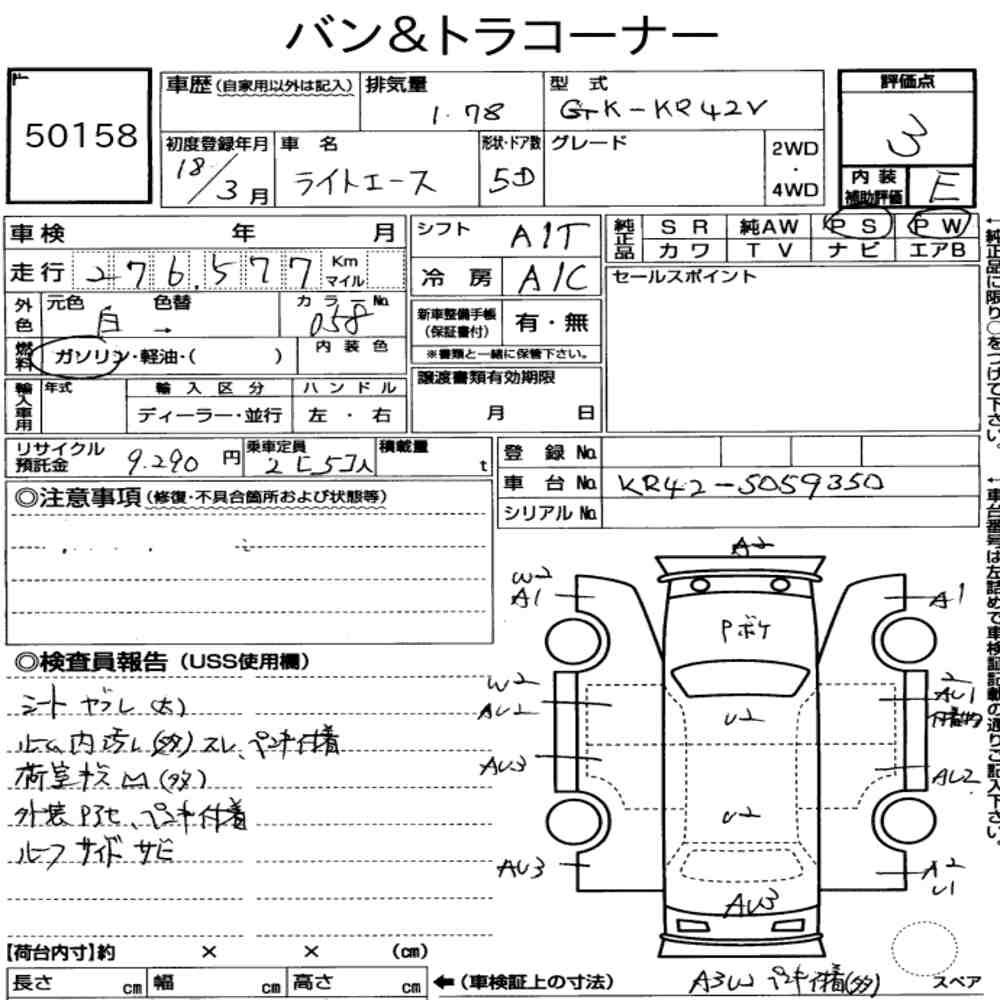 バン&トラコーナー
50158
車歴(自家用以外は記入)
排気量
型 式
評価点
1.78
GK-KR42V
3
初度登録年月
車 名
形状・ドア数
グレード
2WD
・
4WD
18/3月
ライトエース
5D
内 装
補助評価
E
車検 年 月
シフト
A1T
純正品
S R
純AW
P S
P W
カ ワ
T V
ナ ビ
エアB
走行
276,577
Km
マイル
冷 房
A/C
セールスポイント
外色
元色
色替
カ ラ ー No.
白 →
058
新車整備手帳
(保証書付)
有・無
※書類と一緒に保管下さい。
燃料
ガソリン・軽油・( )
内 装 色
輸入車用
年式
輸 入 区 分
ハ ン ド ル
ディーラー・並行
左 ・ 右
譲渡書類有効期限
月 日
リサイクル
預託金
9.290 円
乗車定員
2と5コ人
積載量
t
登 録 No.
車 台 No.
KR42-5059350
シリアル No.
←純正品に限り○をつけて下さい。
←車台番号は左詰めで車検証記載の通りご記入下さい。
◎注意事項(修復・不具合箇所および状態等)
◎検査員報告(USS使用欄)
シート ヤブレ(大)
ルーム内汚レ(多)スレ、ペンキ付着
荷室キズ凹(多)
外装Pアセ、ペンキ付着
ルーフ サイド サビ
A2
W2
A1
A1
Pボケ
W2
AU2
U2
2
AU1
付着物
AU3
AU2
U2
AU3
A2
U1
AU3
【荷台内寸】約 × × (cm)
長さ cm
幅 cm
高さ cm
←(車検証上の寸法)
A3W ペンキ付着(多)
スペア